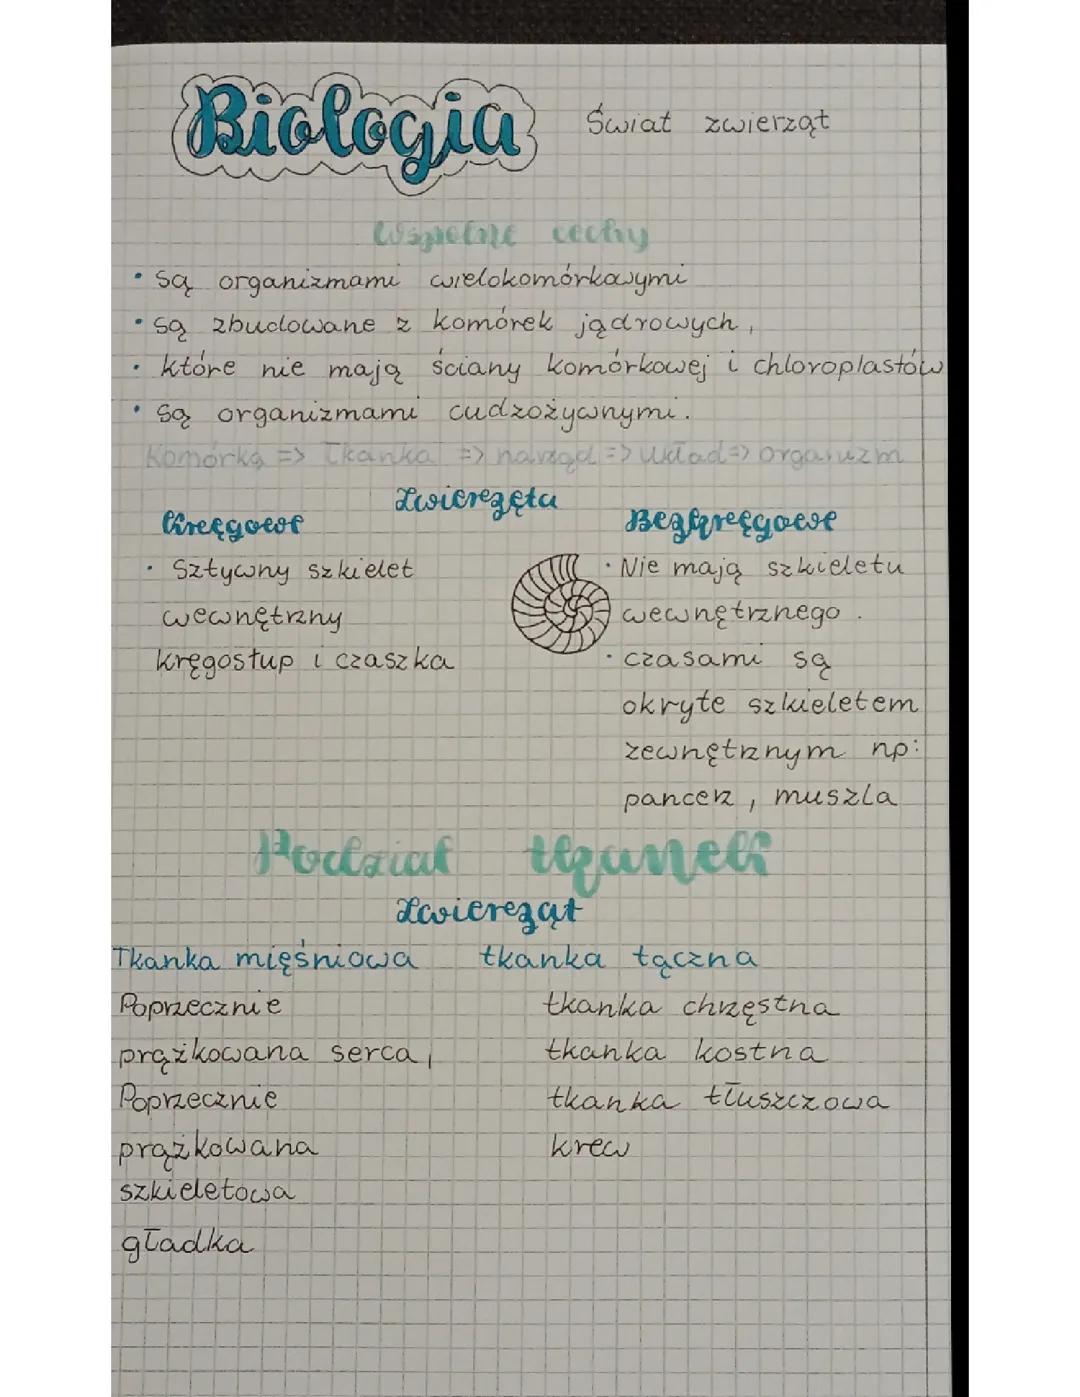 Biologia Świat zwierząt
Wspólne cechy
• są organizmami wielokomórkowymi
• są zbudowane z komórek jądrowych,
• które nie mają ściany komórkowej i chloroplastów
• są organizmami cudzożywnymi.
Komórka => Tkanka => narząd => układ => organizm
Zwierzęta
Kręgowe
Bezkręgowe
• Sztywny szkielet
wewnętrzny
kręgosłup i czaszka
• Nie mają szkieletu
wewnętrznego.
• czasami są
okryte szkieletem
zewnętrznym np:
pancerz, muszla
Podział tkanek
Zwierząt
Tkanka mięśniowa
Poprzecznie
prążkowana serca,
Poprzecznie
prążkowana
szkieletowa
gładka
tkanka łączna
tkanka chrzęstna
tkanka kostna
tkanka tłuszczowa
krew